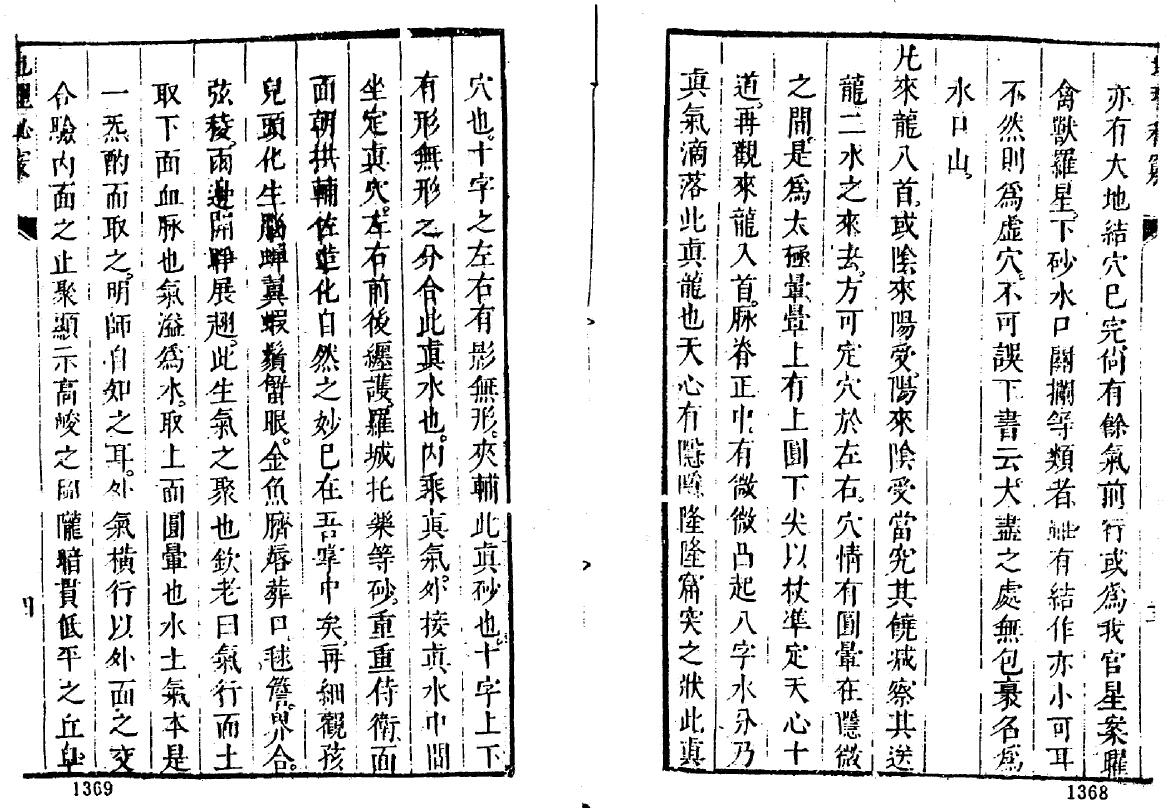 亦有大地結穴已完尙有餘氣前行或為我官星案曜
禽獸羅星。下砂水口關攔等類者。縱有結作亦小可耳
不然則為虛穴。不可誤下書云大盡之處無包裹名為
水口山。
凡來龍入首。或陰來陽受。陽來陰受當究其饒减察其送
龍二水之來去。方可定穴於左右。穴情有圓暈在隱微
之間。是為太極暈暈上有上圓下尖以杖準定天心十
道。再觀來龍入首。脉脊正中。有微微凸起八字水分乃
眞氣滴落此眞龍也天心有隱隱隆隆窩突之狀此眞
1368
地理秘竅
穴也。十字之左右有影無形。夾輔此眞砂也。十字上下
有形無形之分合此眞水也。內乘眞氣。外接眞水中間
坐定眞穴。左右前後纏護。羅城托樂等砂。重重侍衛。面
面朝拱輔佐造化自然之妙已在吾掌中矣。再細觀孩
兒頭化生腦蟬翼蝦鬚蟹眼。金魚臍唇葬口毬簷。界合。
弦稜。兩邊開睜展翅。此生氣之聚也欽老曰氣行而土
取下面血脉也氣溢為水。取上面圓暈也水土氣本是
一炁酌而取之。明師自知之耳。外氣橫行以外面之交
合驗內面之止聚顯示高峻之隴暗貫低平之丘阜
四
1369